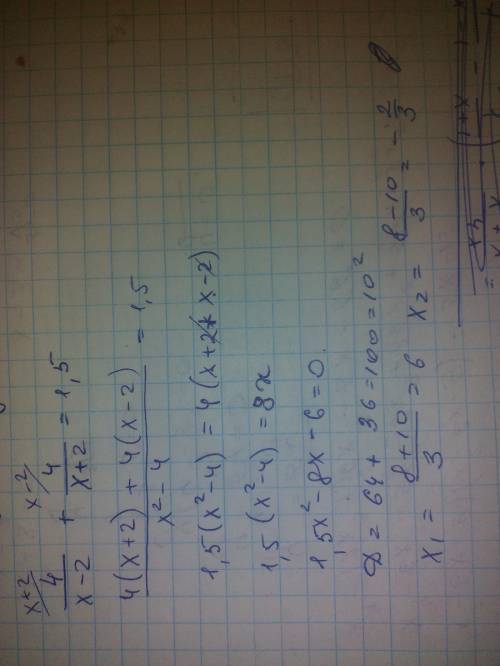 x+2/ x-2/
4/(x-2) + 4/(x+2) = 1,5
(4(x+2) + 4(x-2))/(x²-4) = 1,5
1,5(x²-4) = 4(x+2+x-2)
1,5(x²-4) = 8x
1,5x²-8x-6=0.
D = 64+36=100=10²
x₁ = (8+10)/3 = 6 x₂ = (8-10)/3 = -2/3